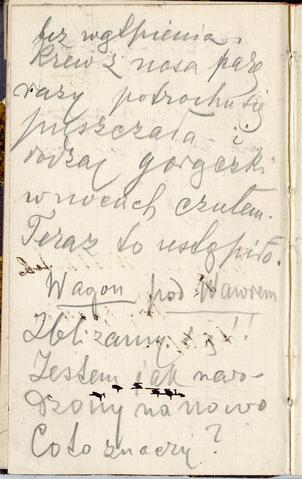 bez wątpienia.
Krew z nosa parę
razy potrochu się
puszczała i
rodzaj gorączki
w nocach czułem.
Teraz to ustąpiło.
Wagon pod Wawrem
Zbliżamy się!!
Jestem jak naro-
dzony na nowo
Co to znaczy?